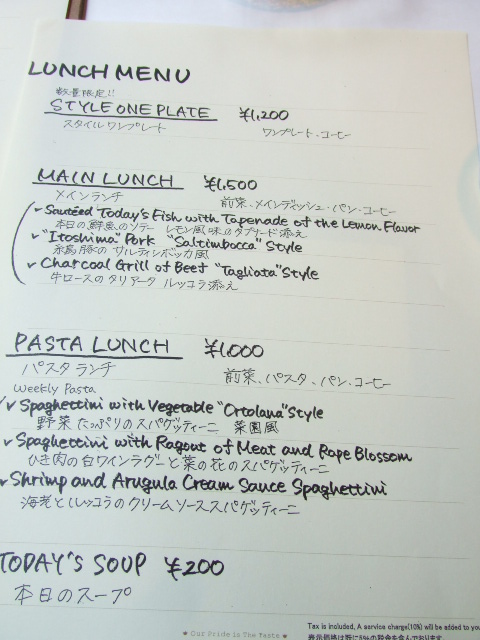 LUNCH MENU
数量限定!!
STYLE ONE PLATE ¥1,200
スタイルワンプレート ワンプレート・コーヒー
MAIN LUNCH ¥1,500
メインランチ 前菜、メインディッシュ・パン・コーヒー
Sautéed Today's Fish with Tapenade of the Lemon Flavor
本日の鮮魚のソテー レモン風味のタプナード添え
"Itoshima" Pork "Saltimbocca" Style
糸島豚のサルティンボッカ風
Charcoal Grill of Beef "Tagliata" Style
牛ロースのタリアータ ルッコラ添え
PASTA LUNCH ¥1,000
パスタランチ 前菜、パスタ、パン・コーヒー
Weekly Pasta
Spaghettini with Vegetable "Ortolana" Style
野菜たっぷりのスパゲッティーニ 菜園風
Spaghettini with Ragout of Meat and Rape Blossom
ひき肉の白ワインラグーと菜の花のスパゲッティーニ
Shrimp and Arugula Cream Sauce Spaghettini
海老とルッコラのクリームソーススパゲッティーニ
TODAY'S SOUP ¥200
本日のスープ
Our Pride is The Taste
Tax is included. A service charge(10%) will be added to you
表示価格は既に5%の税金を含んでおります。